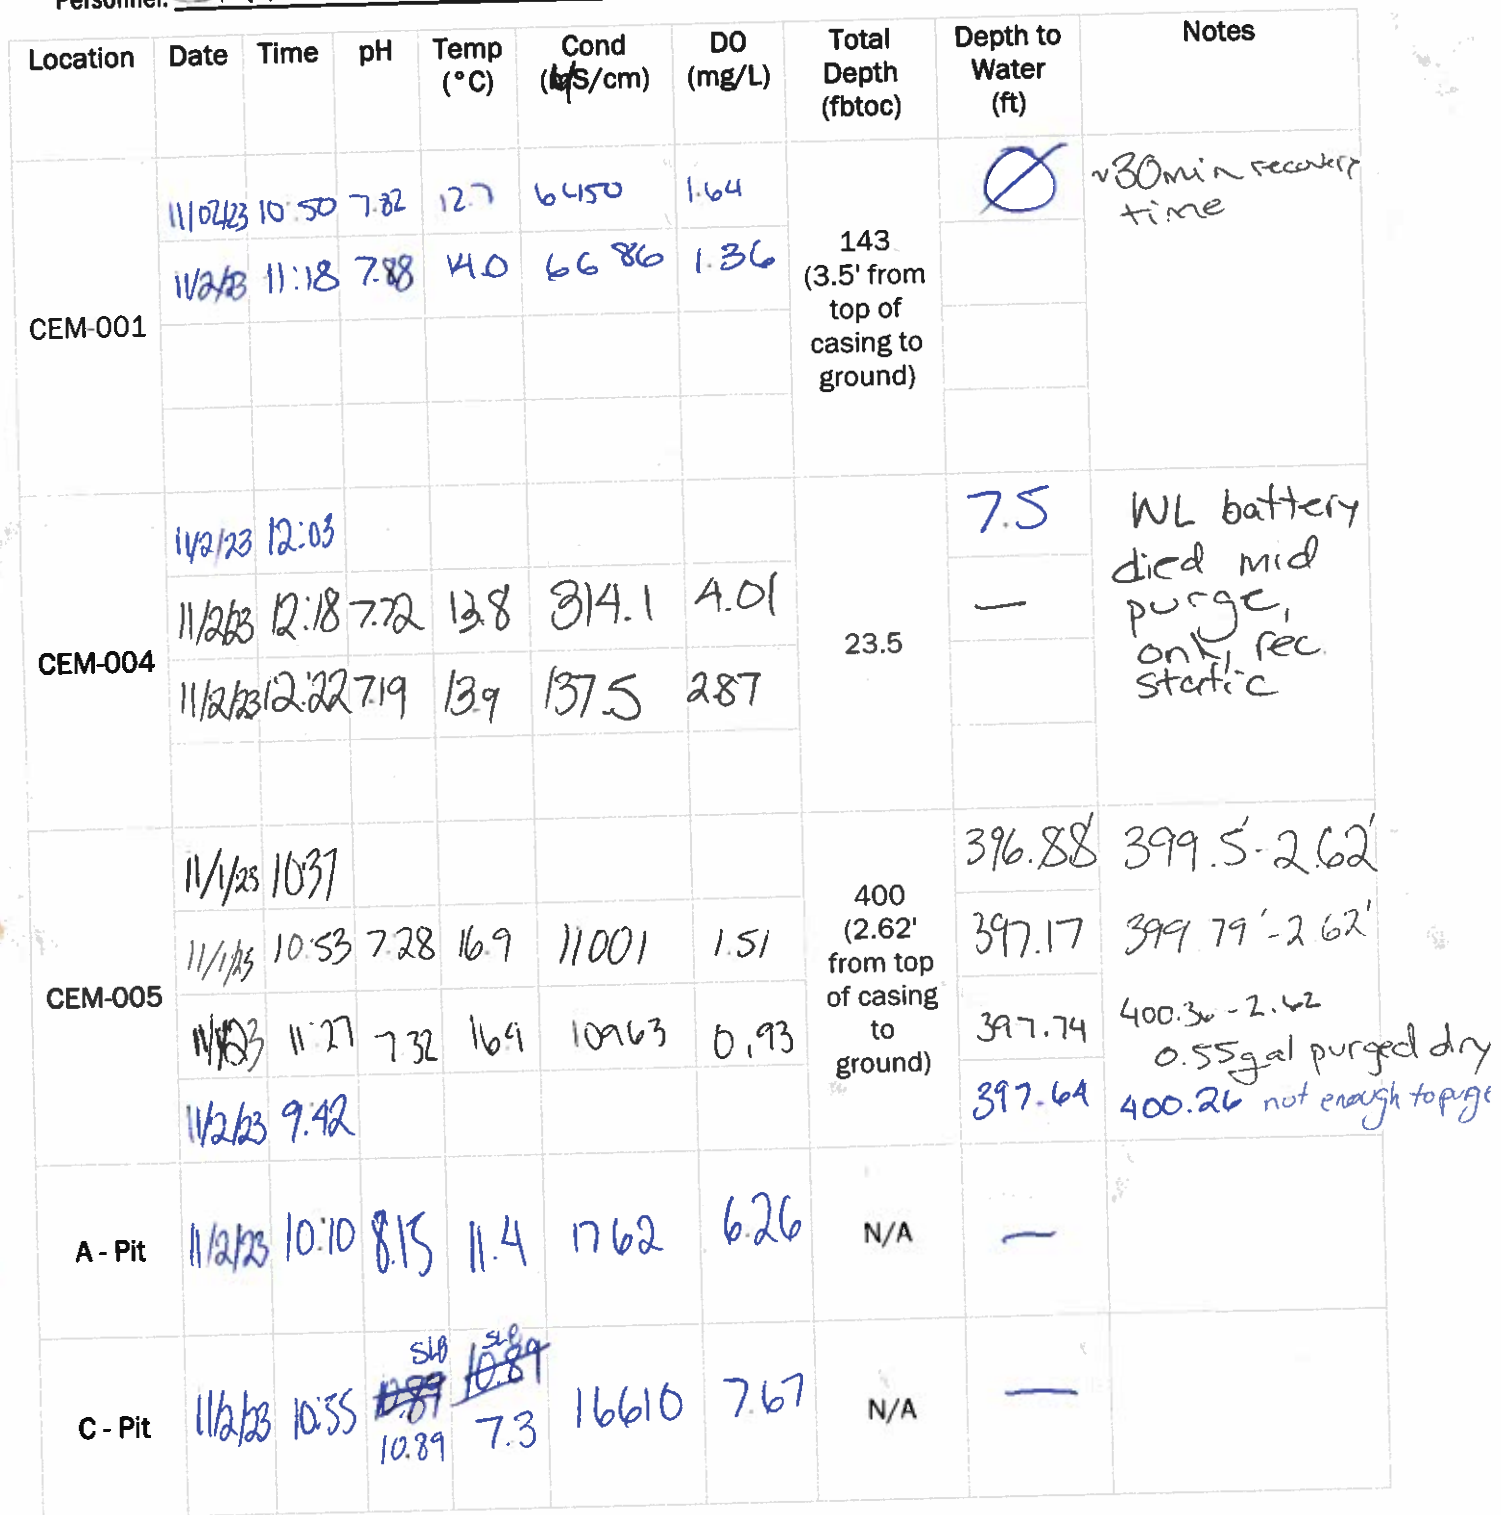 Personnel:
Location Date Time pH Temp (°C) Cond (µS/cm) DO (mg/L) Total Depth (fbtoc) Depth to Water (ft) Notes
CEM-001
143 (3.5' from top of casing to ground)
11/02/23 10:50 7.82 12.7 6450 1.64 Ø ~30min recovery time
11/2/23 11:18 7.88 14.0 6686 1.36
CEM-004
23.5
11/2/23 12:03 7.5 WL battery died mid purge, only rec. static
11/2/23 12:18 7.72 13.8 314.1 4.01 —
11/2/23 12:22 7.19 13.9 137.5 2.87
CEM-005
400 (2.62' from top of casing to ground)
11/1/23 10:37 396.88' 399.5'-2.62'
11/1/23 10:53 7.28 16.9 11001 1.51 397.17 399.79'-2.62'
11/1/23 11:27 7.32 16.9 10963 0.93 397.74 400.36-2.62
0.55gal purged dry
11/2/23 9:42 397.64 400.26 not enough to purge
A - Pit 11/2/23 10:10 8.15 11.4 1762 6.26 N/A —
SLB SLB
10.89 10.89
C - Pit 11/2/23 10:35 10.89 7.3 16610 7.67 N/A —